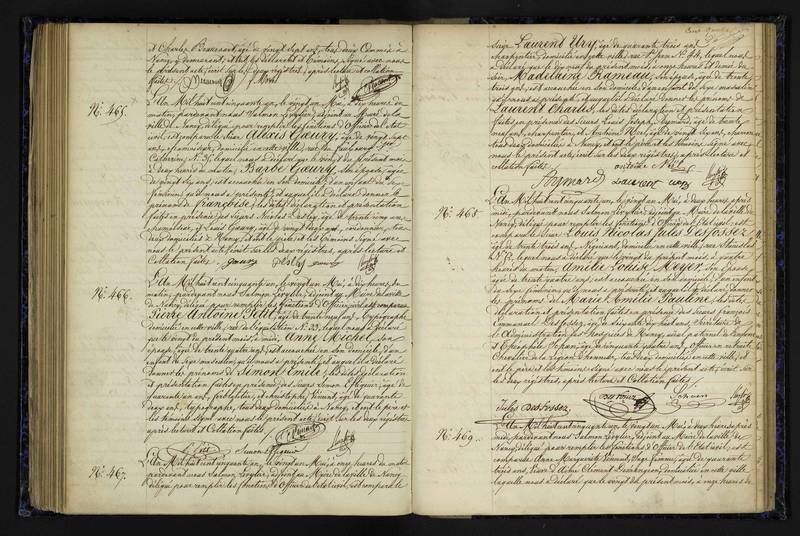 et Charles Beaucourt, âgé de vingt sept ans, tous deux Commis à
Nancy y demeurant, et ont les déclarant et témoins signé avec nous
le présent acte, écrit sur les deux registres, après lecture et collation
N.º 465.
L'An Mil huit cent cinquante un, le vingt un Mai, à dix heures du
matin, pardevant nous Salmon Lévylier, adjoint au Maire de la
ville de Nancy, délégué pour remplir les fonctions d'Officier de l'Etat
civil, est comparu le sieur Alexis Gaury, âgé de vingt sept
ans, domicilié en cette ville, rue du faubourg Ste
Catherine, N. 37, lequel nous a déclaré que le vingt du présent mois
à deux heures du matin, Barbe Gaury, son épouse, âgée
de vingt six ans, est accouchée en son domicile, d'un enfant du sexe
féminin qu'il nous a présenté, et auquel il a déclaré donner le
prénom de françoise; les dites déclaration et présentation
faites en présence des sieurs Nicolas Parley, âgé de trente cinq ans,
et Louis Gaury, âgé de vingt sept ans, cordonnier, tous
deux domiciliés à Nancy, et ont le père et les témoins signé avec
nous le présent acte écrit sur les deux registres, après lecture et
Collation faites.
N.º 466.
L'An Mil huit cent cinquante un, le vingt un Mai, à dix heures du
matin, pardevant nous Salmon Lévylier, adjoint au Maire de la ville
de Nancy, délégué pour remplir les fonctions d'Officier de l'Etat civil, est comparu
Pierre Antoine Petit, âgé de trente neuf ans, typographe
domicilié en cette ville, rue de l'équitation N. 23, lequel nous a déclaré
que le vingt du présent mois, à midi, Anne Michel, son
épouse, âgée de trente quatre ans, est accouchée en son domicile, d'un
enfant du sexe masculin qu'il nous a présenté, et auquel il a déclaré
donner les prénoms de Simon Emile; les dites déclaration
et présentation faites en présence des sieurs Simon Effiquier, âgé de
quarante un ans, ferblantier, et Christophe Vinard, âgé de quarante
deux ans, typographe, tous deux domiciliés à Nancy, et ont le père et
les témoins signé avec nous le présent acte, écrit sur les deux registres
après lecture et Collation faites.
Petit Simon Effiquier
N.º 467.
L'An Mil huit cent cinquante un, le vingt un Mai, à onze heures du matin
pardevant nous Salmon Lévylier, adjoint au Maire de la ville de Nancy,
délégué pour remplir les fonctions d'Officier de l'état civil, est comparu le
sieur Laurent Ury, âgé de quarante trois ans,
charpentier, domicilié en cette ville, rue St Jean N.º 44, lequel nous
a déclaré que le dix neuf du présent mois, à onze heures et demie du
soir, Madelaine Rameau, son épouse, âgée de trente
trois ans, est accouchée en son domicile, d'un enfant du sexe masculin
qu'il nous a présenté, et auquel il a déclaré donner les prénoms de
Laurent Charles; les dites déclaration et présentation
faites en présence des sieurs Louis Joseph Aymard, âgé de trente
neuf ans, charpentier, et Antoine Noël, âgé de vingt six ans,
tous deux domiciliés à Nancy, et ont le père et les témoins signé avec
nous le présent acte, écrit sur les deux registres, après lecture et
collation faites. antoine Noël
Aymard Laurent ury
N.º 468.
L'An Mil huit cent cinquante un, le vingt un Mai, à deux heures après
midi, pardevant nous Salmon Lévylier, adjoint au Maire de la ville de
Nancy, délégué pour remplir les fonctions d'Officier de l'Etat civil, est
comparu le sieur Louis Nicolas Jules Desfossez
âgé de trente trois ans, Négociant, domicilié en cette ville, rue Stanislas
N.º 7, lequel nous a déclaré que le vingt du présent mois, à quatre
heures du matin, Amélie Louise Meyer, son épouse
âgée de trente quatre ans, est accouchée en son domicile, d'un enfant
du sexe féminin qu'il nous a présenté, et auquel il a déclaré donner
les prénoms de Marie Emélie Pauline; les dites
déclaration et présentation faites en présence des sieurs François
Emmanuel Desfossez, âgé de soixante huit ans, Secrétaire de
l'Administration des Hospices de Nancy,
Chevalier de la Légion d'honneur, tous deux domiciliés en cette ville, et
ont le père et les témoins signé avec nous le présent acte, écrit sur
les deux registres, après lecture et Collation faites.
Jules Desfossez
N.º 469.
L'An Mil huit cent cinquante un, le vingt un Mai, à deux heures après
midi, pardevant nous Salmon Lévylier, adjoint au Maire de la ville
de Nancy, délégué pour remplir les fonctions d'Officier de l'Etat civil, est
comparue Anne Marguerite Simonet, sage femme, âgée de quarante
trois ans, domiciliée en cette ville
laquelle nous a déclaré que le vingt du présent mois, à onze heures du